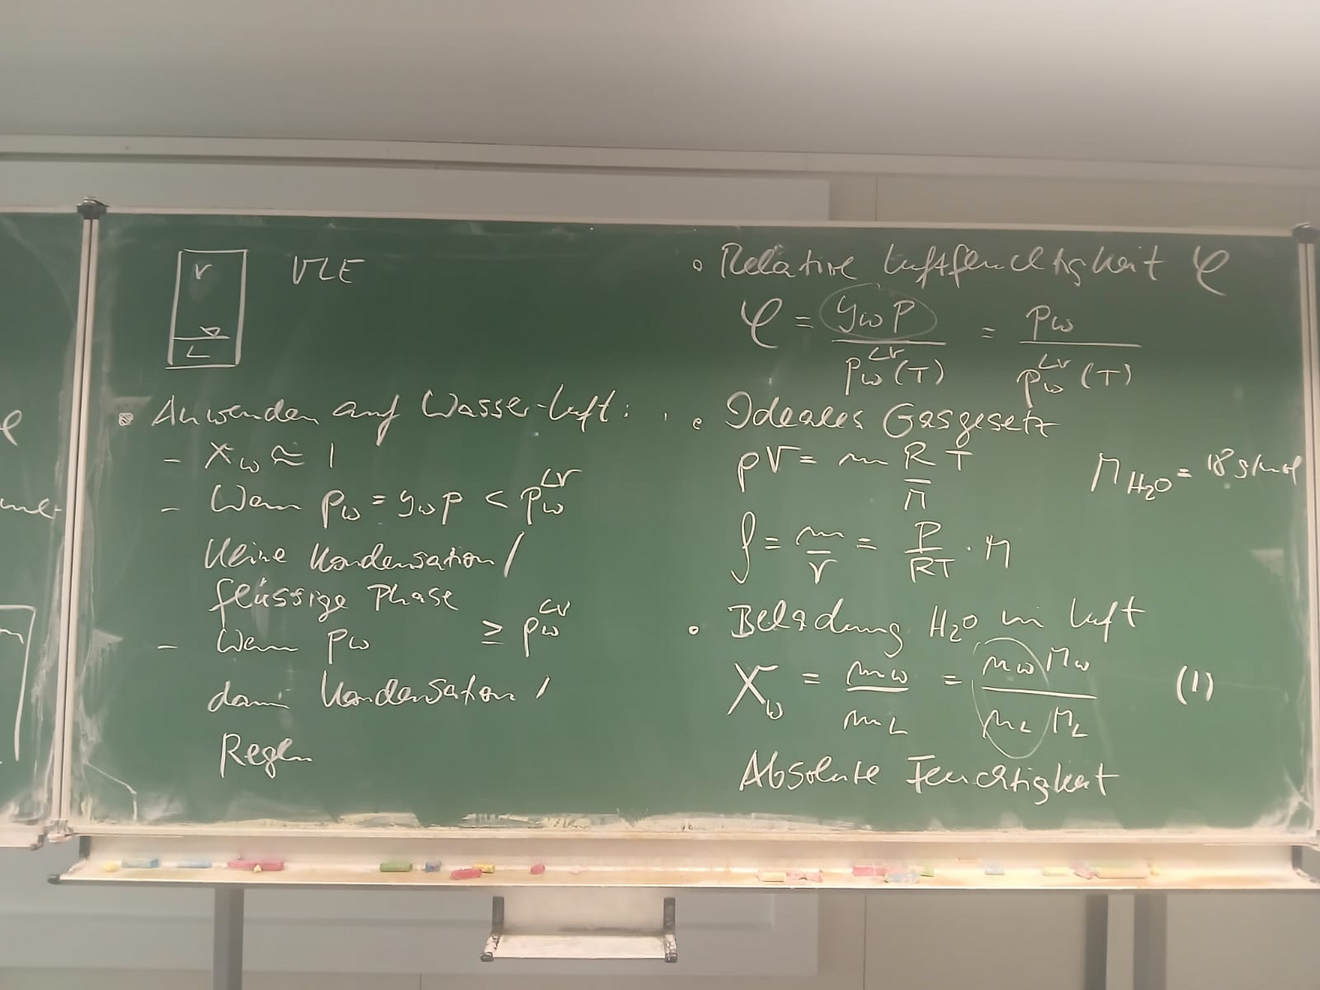 V
VLE
L
Anwenden auf Wasser-Luft:
- x_w ≈ 1
- Wenn p_w = y_w p < p_w^LV
keine Kondensation /
flüssige Phase
- Wenn p_w ≥ p_w^LV
dann Kondensation /
Regen
Relative Luftfeuchtigkeit φ
φ = y_w p / p_w^LV (T) = p_w / p_w^LV (T)
Ideales Gasgesetz
pV = m R/M T
M_H2O = 18 g/mol
ρ = m/V = P/RT · M
Beladung H2O in Luft
X_w = m_w / m_L = n_w M_w / n_L M_L (1)
Absolute Feuchtigkeit